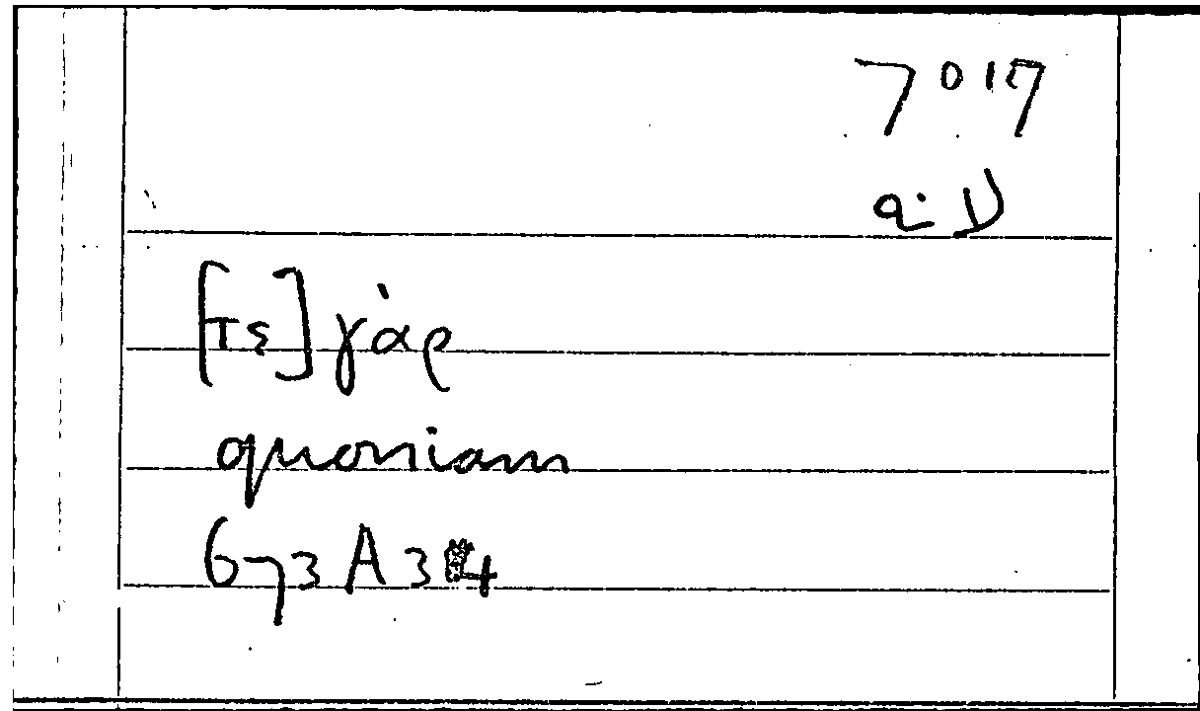 7017
[τς] γὰρ
quoniam
673A34